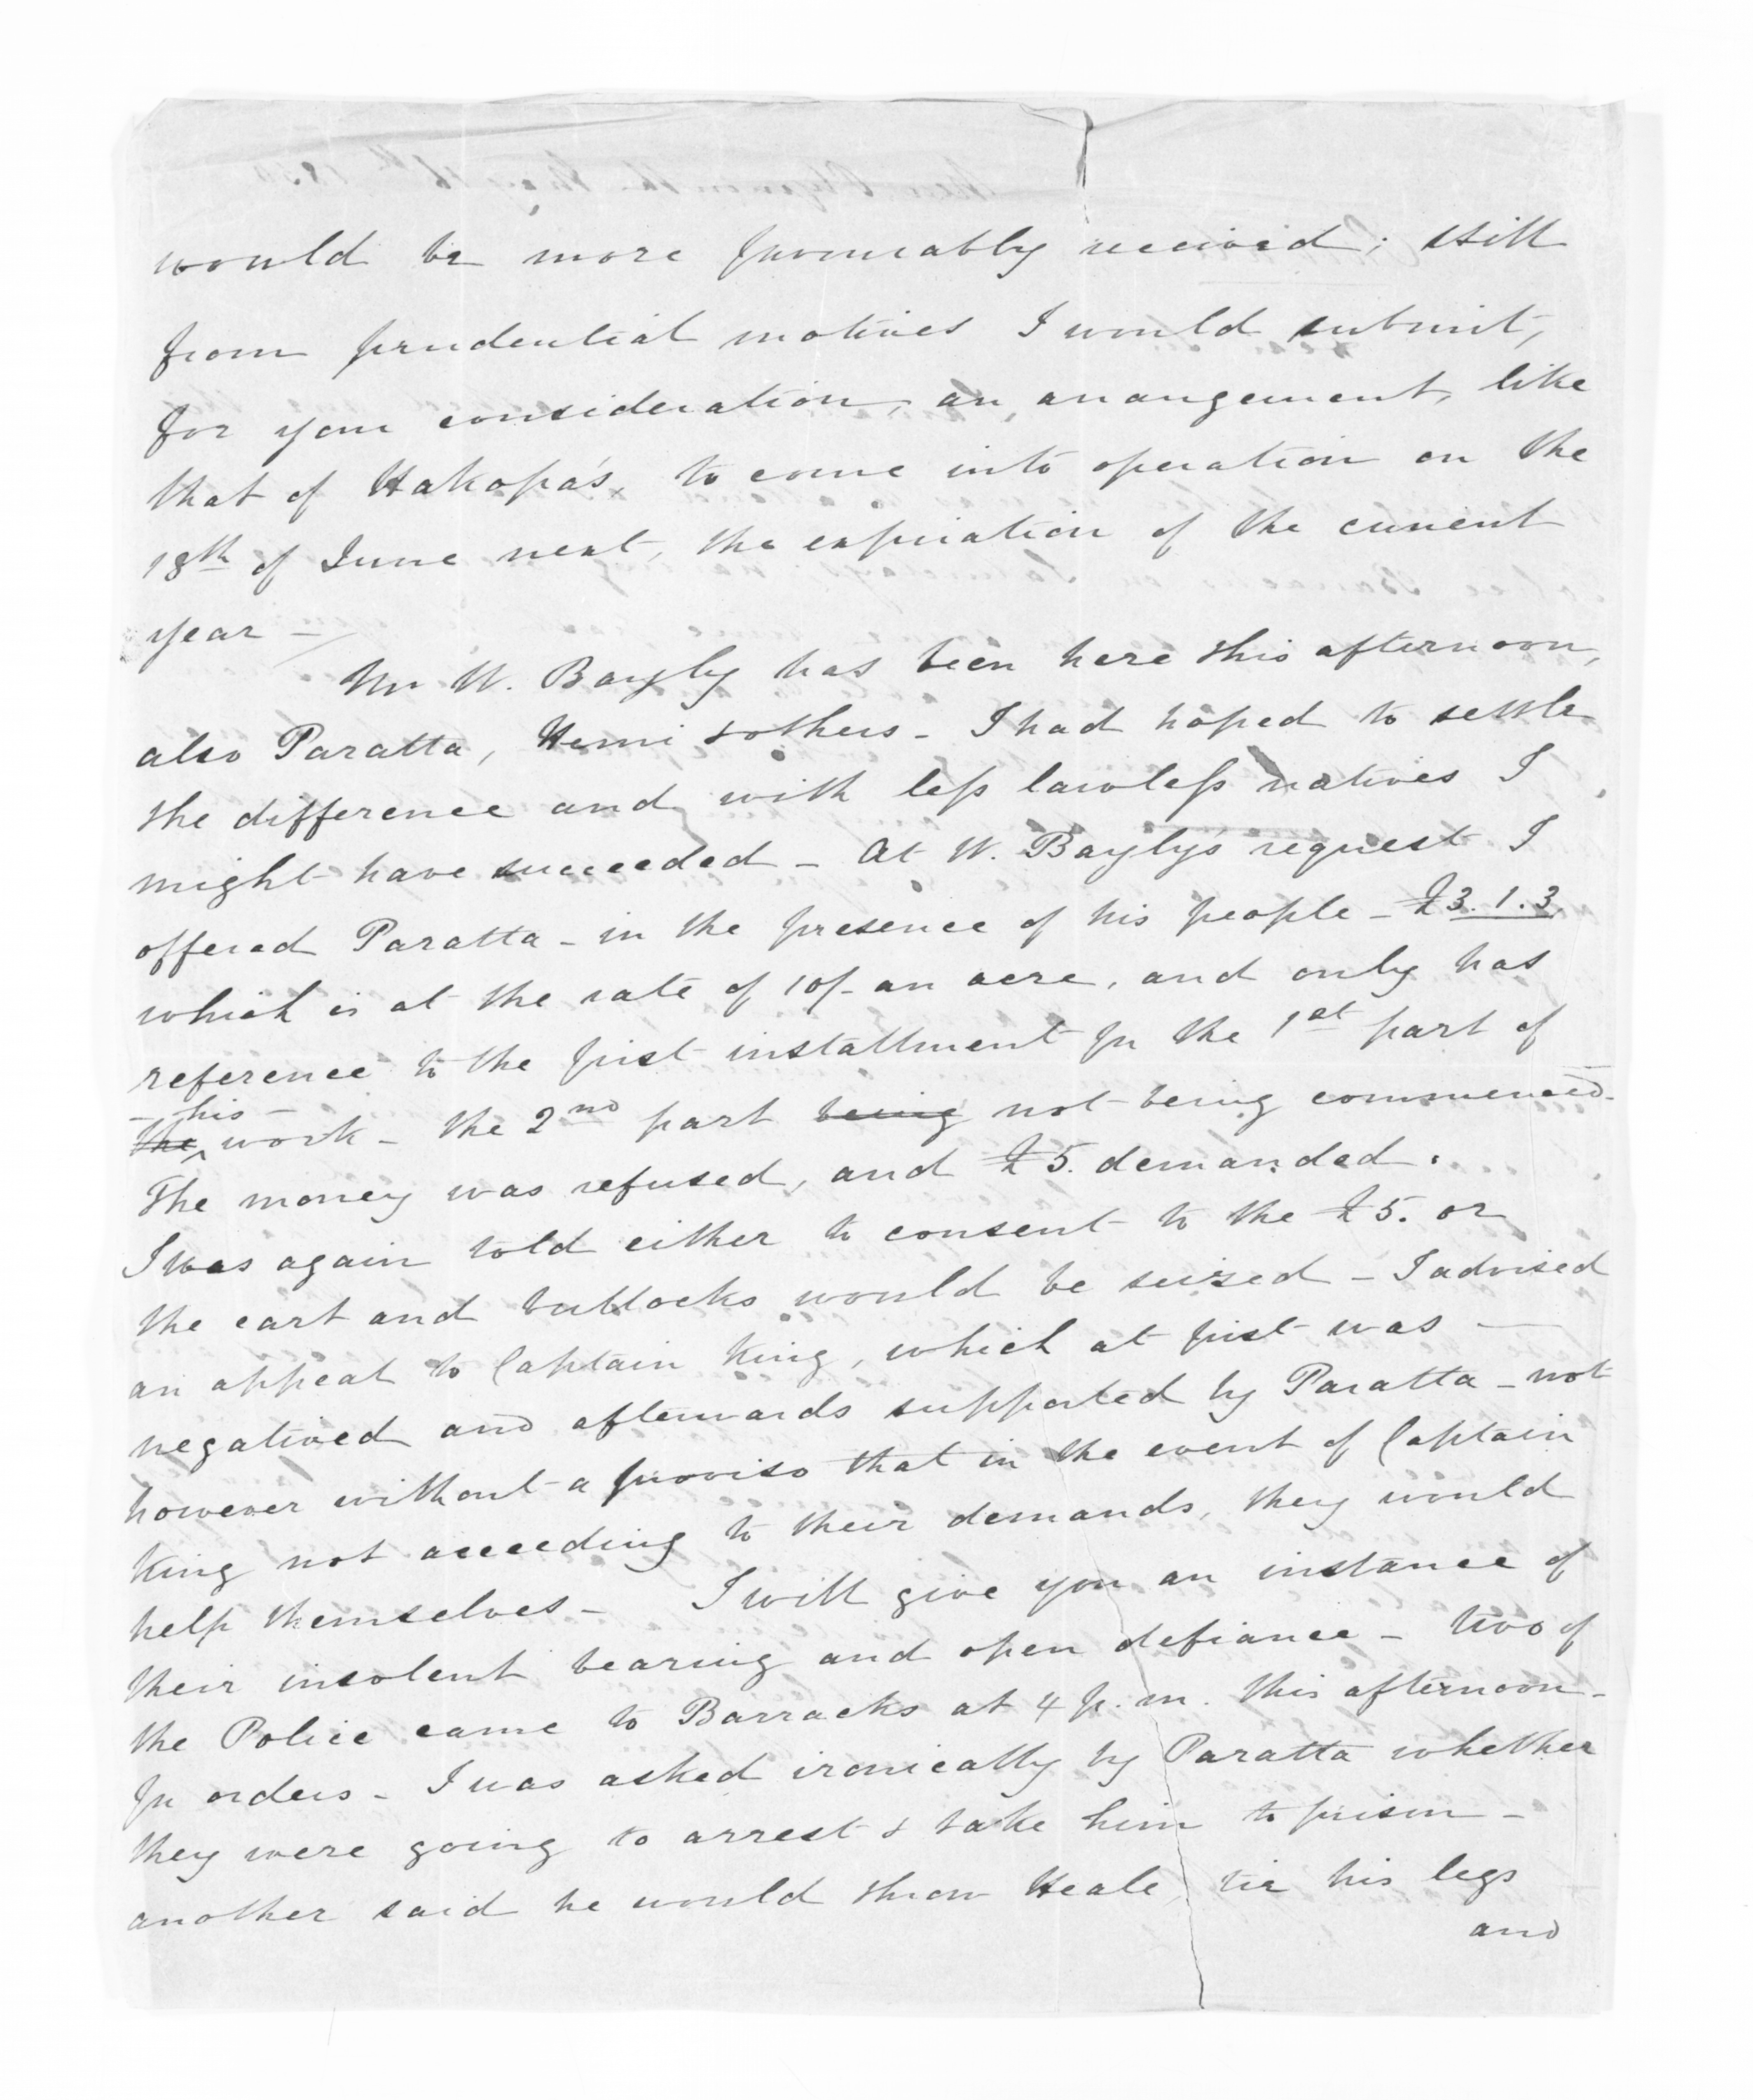 would be more favourably received; still
from prudential motives I would submit,
for your consideration, an arrangement, like
that of Hakopa's, to come into operation on the
18th of June next, the expiration of the current
year —
Mr W. Bayly has been here this afternoon,
also Paratta, Hemi & others - I had hoped to settle
the difference and with less lawless natives I
might have succeeded - At W. Bayly's request I
offered Paratta - in the presence of his people - £3.1.3
which is at the rate of 10/- an acre, and only has
reference to the first installment for the 1st part of
- his -
the work - the 2nd part being not being commenced -
The money was refused, and £5. demanded.
I was again told either to consent to the £5. or
the cart and bullocks would be seized - I advised
an appeal to Captain King, which at first was —
negatived and afterwards supported by Paratta - not
however without a proviso that in the event of Captain
King not acceeding to their demands, they would
help themselves - I will give you an instance of
their insolent bearing and open defiance - two of
the Police came to Barracks at 4 p.m. this afternoon -
for orders - I was asked ironically by Paratta whether
they were going to arrest & take him to prison -
another said he would throw Heale, tie his legs
and